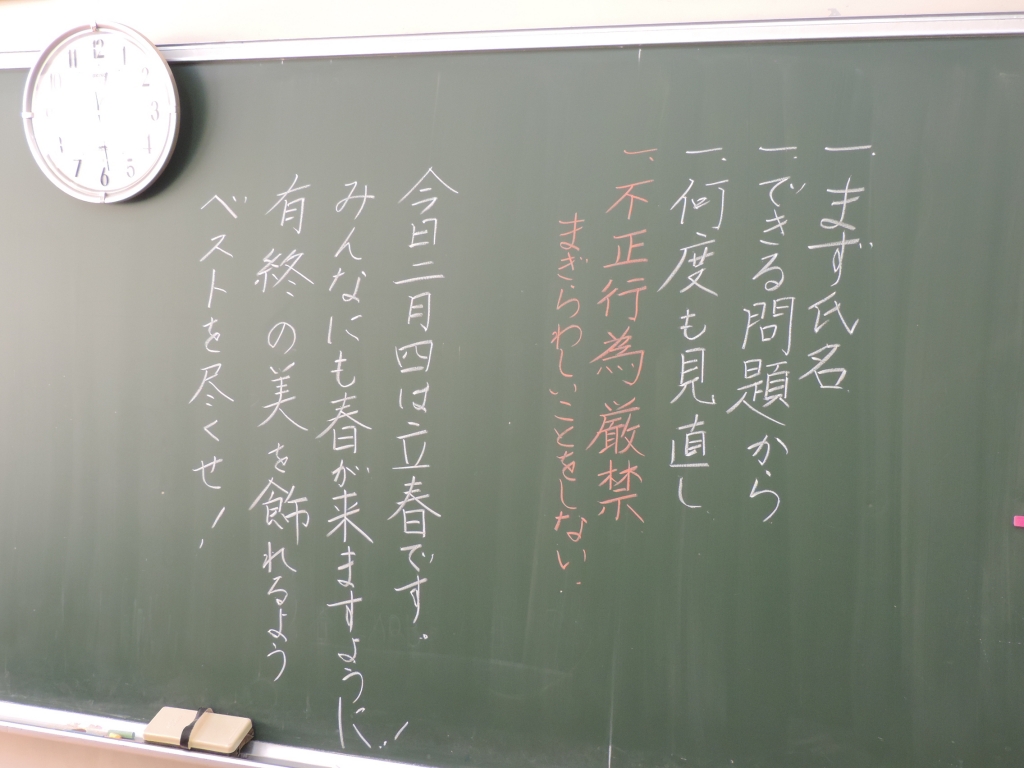 一、まず氏名
一、できる問題から
一、何度も見直し
一、不正行為厳禁
まぎらわしいことをしない。
今日二月四は立春です。
みんなにも春が来ますように!
有終の美を飾れるよう
ベストを尽くせ!
12
11
1
2
3
5
6
7